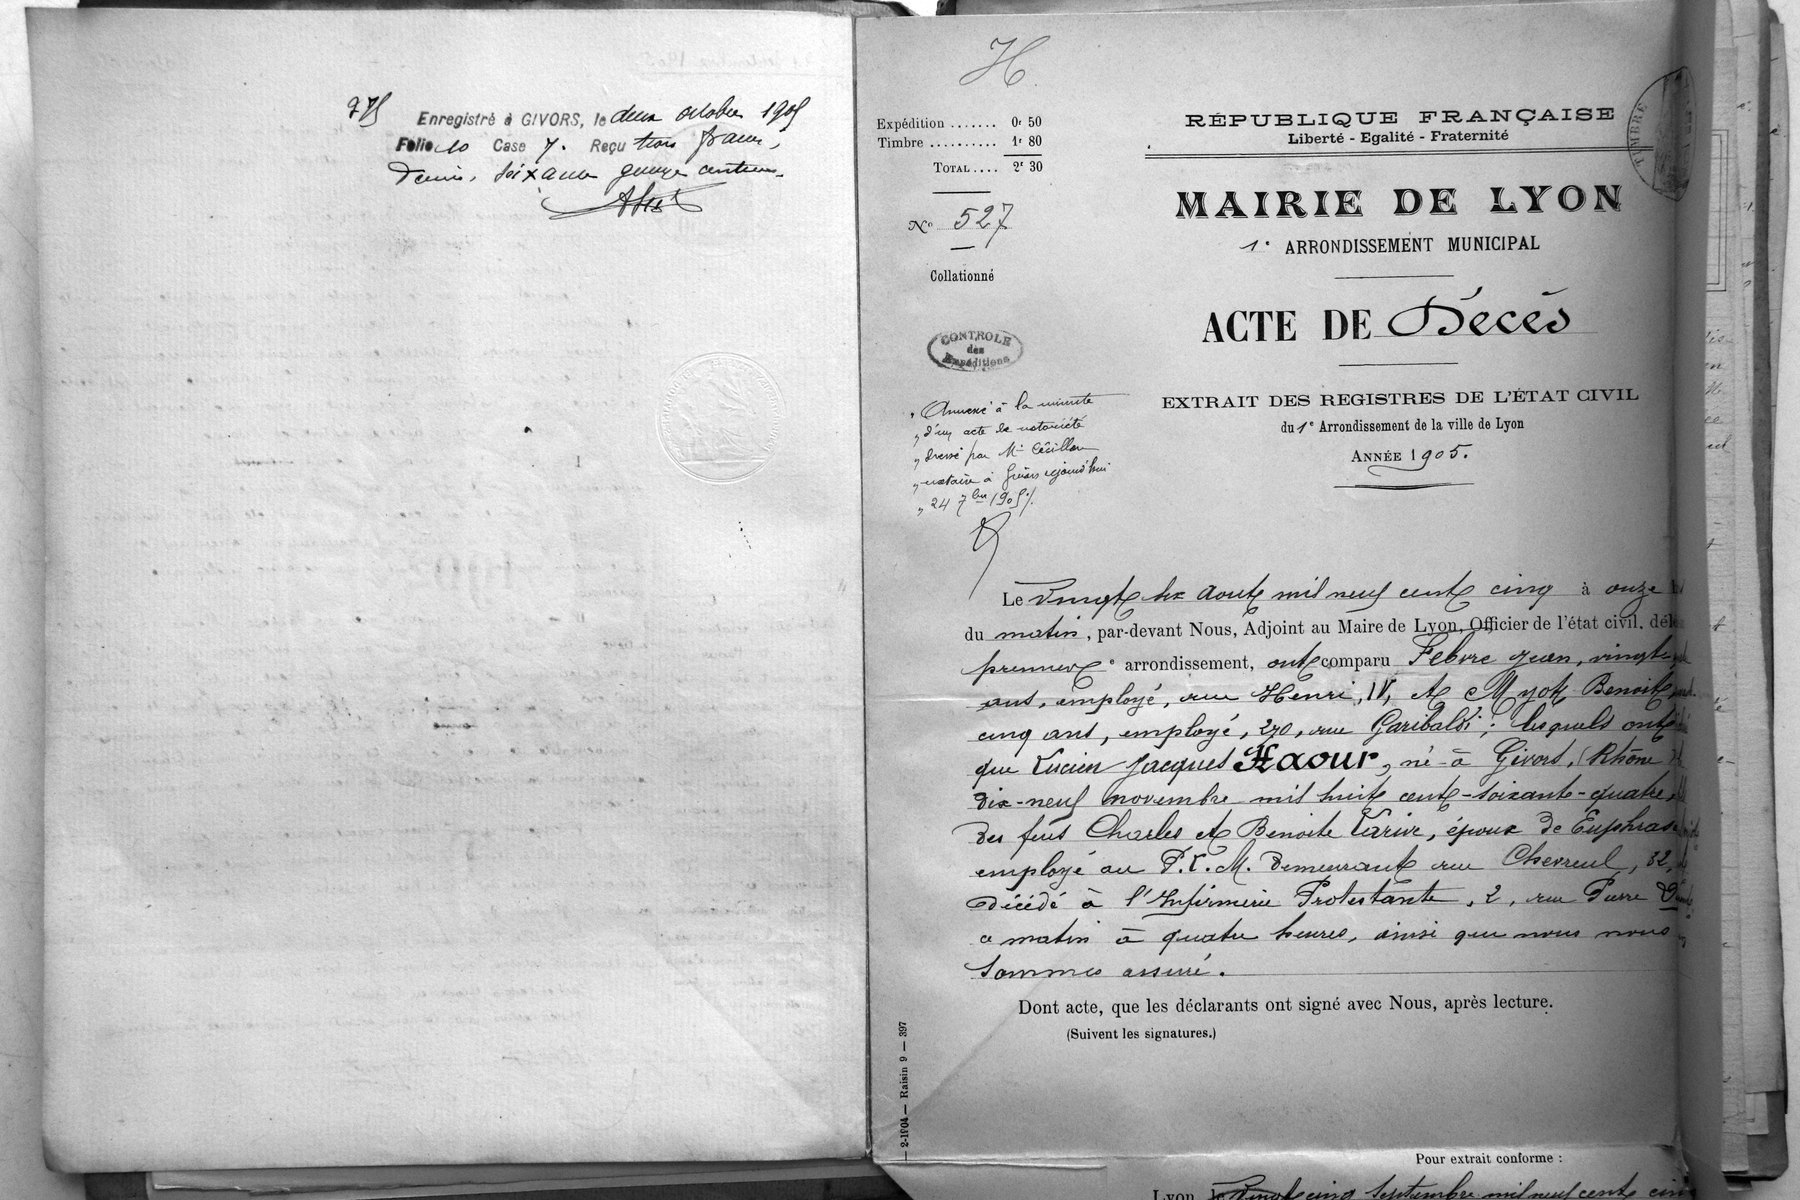 275
Enregistré à GIVORS, le deux octobre 1905
Folio 10 Case 7. Reçu trois francs,
Décimes, soixante quinze centimes.
H
Expédition ....... 0f 50
Timbre .......... 1f 80
TOTAL .... 2f 30
No 527
Collationné
CONTROLE
des
Expéditions
Annexé à la minute
d'un acte de notoriété
dressé par Me
notaire à Givors aujourd'hui
24 7bre 1905
TIMBRE
RÉPUBLIQUE FRANÇAISE
Liberté - Egalité - Fraternité
MAIRIE DE LYON
1e ARRONDISSEMENT MUNICIPAL
ACTE DE Décès
EXTRAIT DES REGISTRES DE L'ÉTAT CIVIL
du 1e Arrondissement de la ville de Lyon
ANNÉE 1905.
Le vingt six Aout mil neuf cent cinq à onze
du matin, par-devant Nous, Adjoint au Maire de Lyon, Officier de l'état civil, délé
premier e arrondissement, ont comparu Febvre Jean, vingt
ans, employé, rue Henri, IV, et Myotz Benoit
cinq ans, employé, 270, rue Garibaldi; lesquels ont
que Lucien Jacques Haour, né à Givors, (Rhône)
dix-neuf novembre mil huit cent-soixante-quatre,
des feus Charles et Benoite Larive, époux de Euphras
employé au P.L.M. demeurant rue Chevreul, 32,
décédé à l'Infirmerie Protestante, 2, rue Pierre
ce matin à quatre heures, ainsi que nous nous
sommes assuré.
Dont acte, que les déclarants ont signé avec Nous, après lecture.
(Suivent les signatures.)
— 2-1904 — Raisin 9 — 397
Pour extrait conforme :
Lyon, le Vingt cinq Septembre mil neuf cent cinq